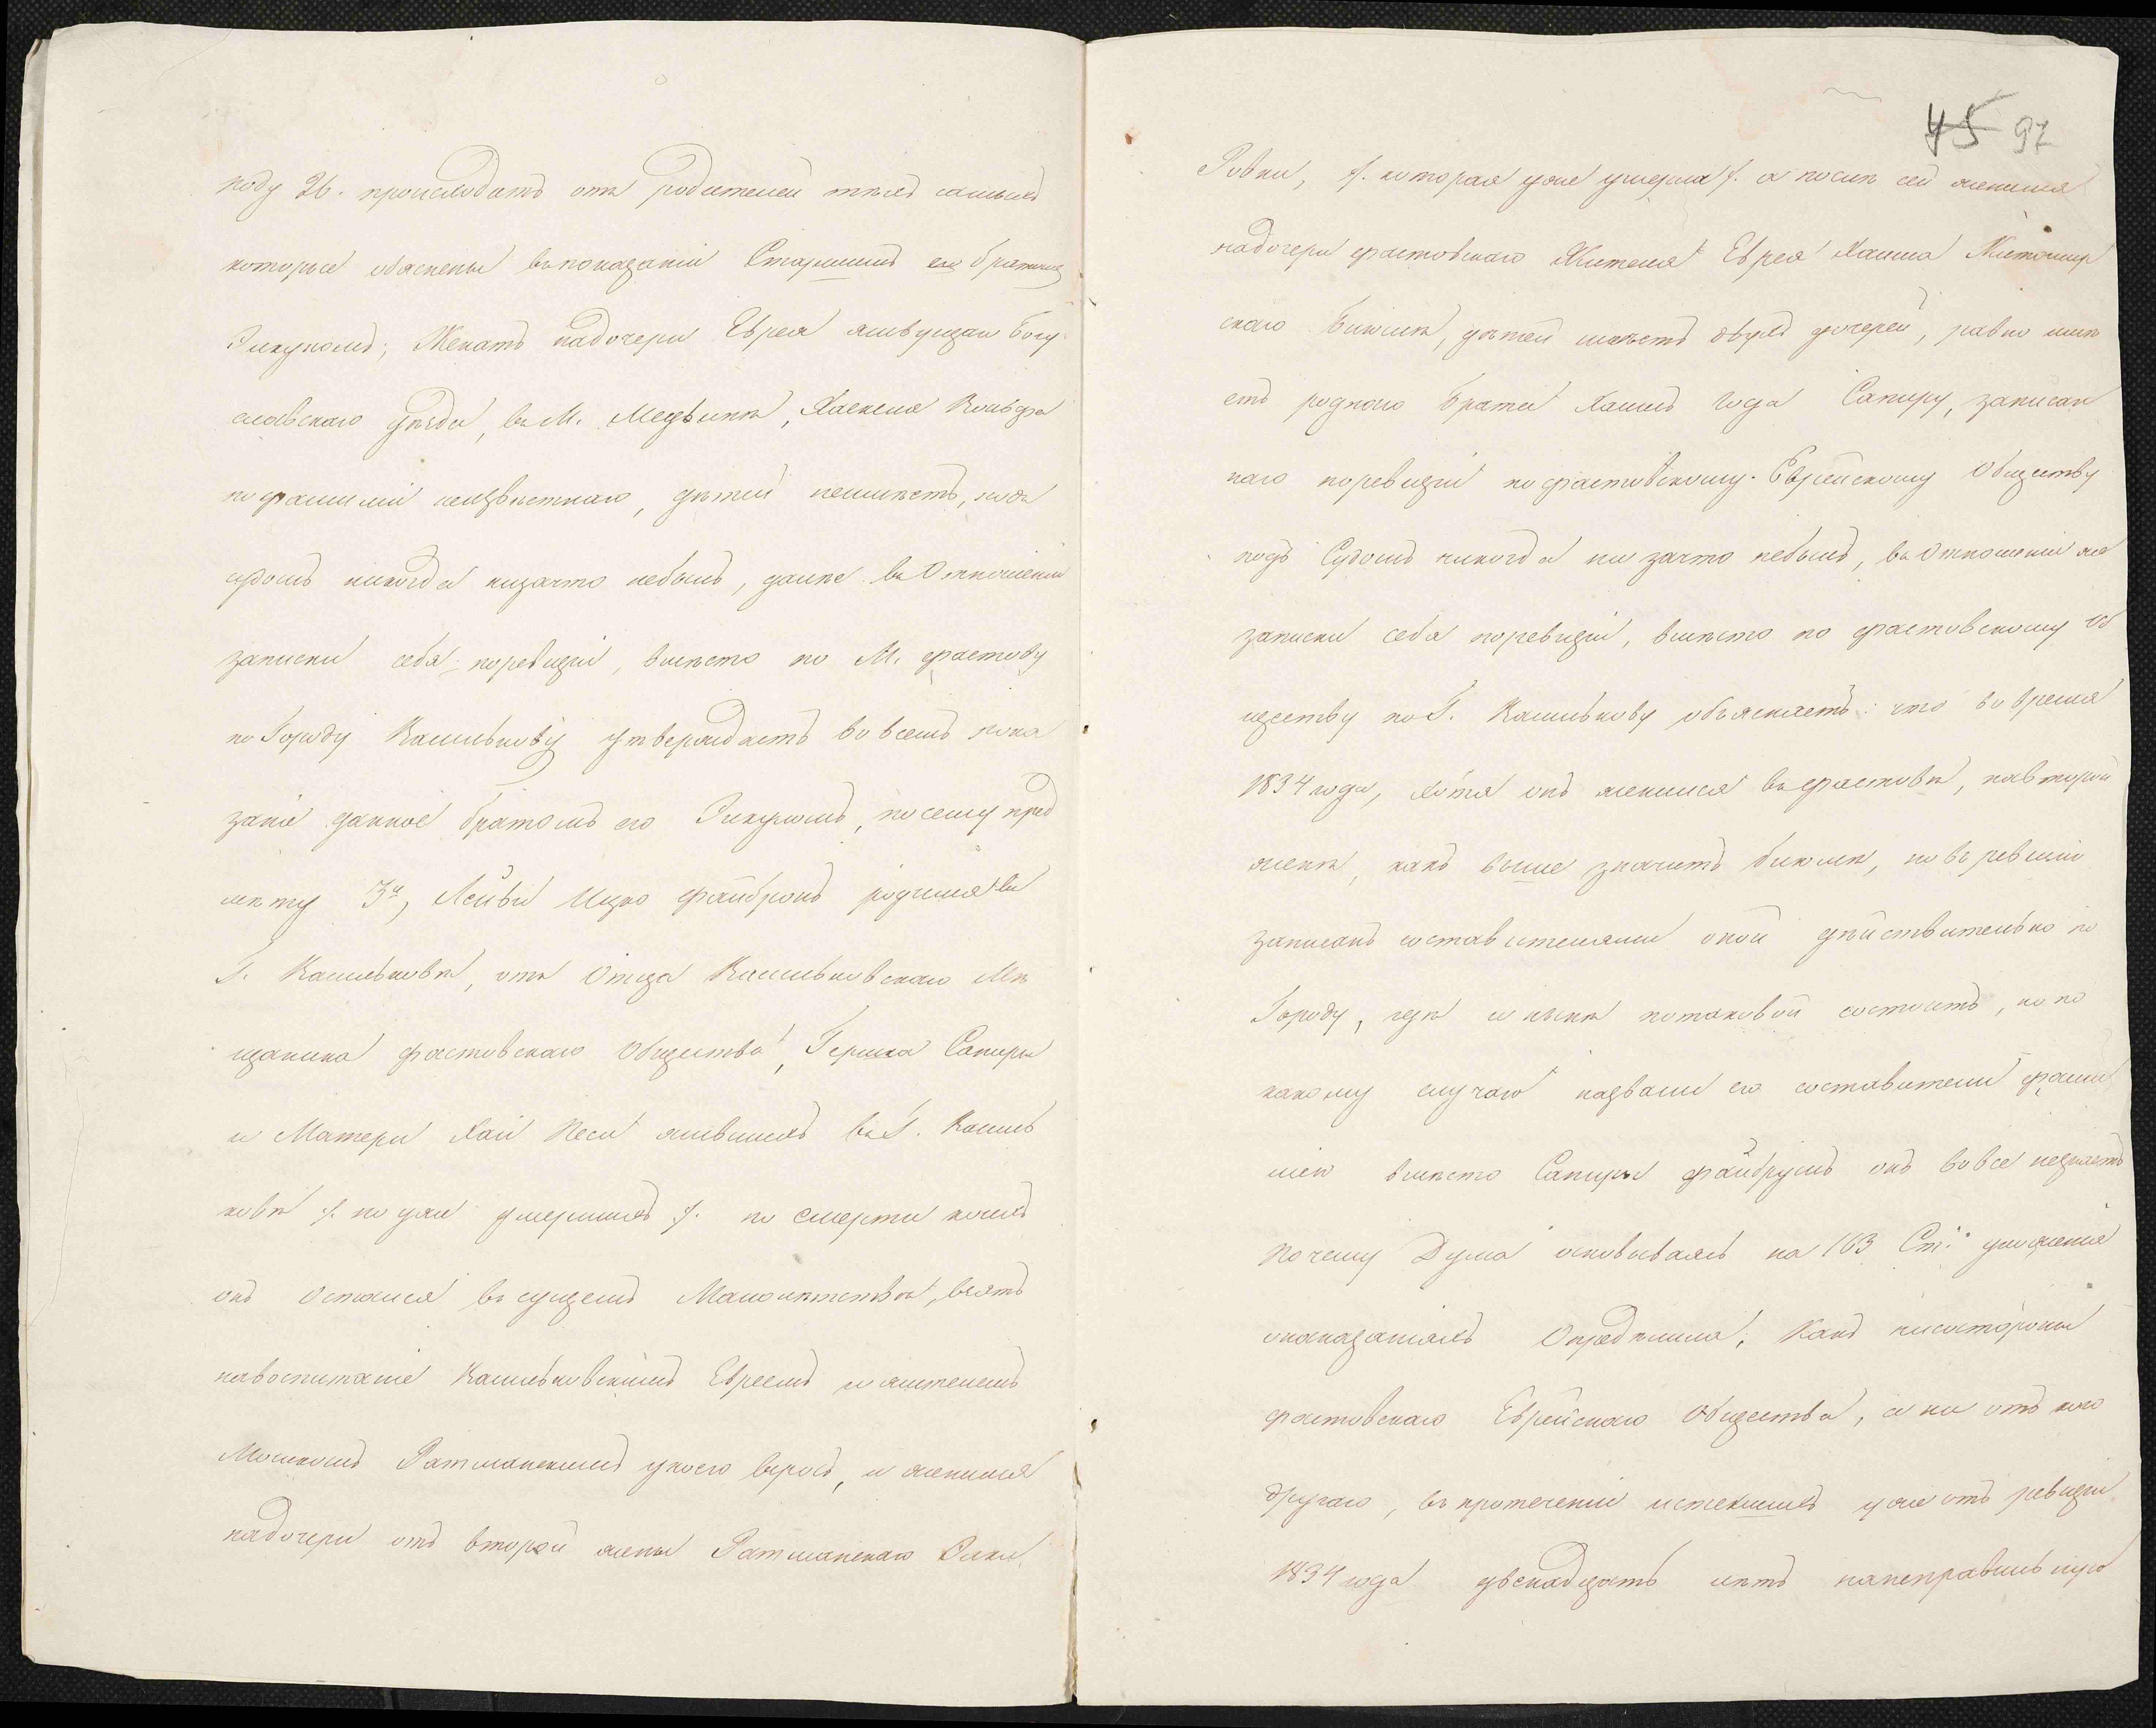 роду 26. происходитъ отъ родителей тѣхъ самыхъ
которые обяснены въпоказаніи Старшимъ его братомъ
Зикуномъ; Женатъ надочери Еврея живущаго Богу
славскаго уѣзда, въ М. Медвинѣ, Хаскеля
пофамиліи неизвѣстнаго, дѣтей неимѣетъ, подъ
судомъ никогда низачто небылъ, далѣе въ Отношеніи
записки себя поревизіи, вмѣсто по М. Фастову
по Городу Василькову утверждаетъ во всемъ пока
заніе данное братомъ его посему пред
мѣту 3й, Лейви Ицко Файбронъ родился въ
Г. Васильковѣ, отъ Отца Васильковскаго Мѣ
щанина Фастовскаго Общества, Гершка Сапиры
и Матери Хаи Песи жившихъ въ Г. Василь
ковѣ /. но уже умершихъ /. по смерти коихъ
онъ остался въ сущемъ Малолѣтствѣ, взятъ
навоспитаніе Васильковскимъ Евреемъ и жителемъ
Мошкомъ Ратманскимъ укоего взросъ, и женился
надочери отъ второй жены Ратманскаго
45 97
Ривки, /. которая уже умерла /. а послѣ сей женился
надочери Фастовскаго Жителя Еврея Хаима Житомир
скаго дѣтей имѣетъ двухъ дочерей, равно имѣ
етъ роднаго брата Хаимъ Сапиру, записан
наго поревизіи по Фастовскому Еврейскому Обществу
подъ Судомъ никогда ни зачто небылъ, въ Отношеніи же
записки себя поревизіи, вмѣсто по Фастовскому Об
ществу по Г. Василькову объясняетъ: что вовремя
1834 года, хотя онъ женился въ Фастовѣ, навторой
женѣ, какъ выше значитъ но въ ревизію
записанъ составителями оной дѣйствительно по
Городу, гдѣ и нынѣ потаковой состоитъ, но по
какому случаю назвали его составители фами
ліею вмѣсто Сапиры Файбрунъ онъ вовсе незнаетъ
Почему Дума основываясь на 163 Ст: уложенія
онаказаніяхъ Опредѣлила, Какъ нисостороны
Фастовскаго Еврейскаго Общества, а ни отъ кого
другаго, въ протеченіи истекшихъ уже отъ ревизіи
1834 года двенадцать лѣтъ нанеправильную